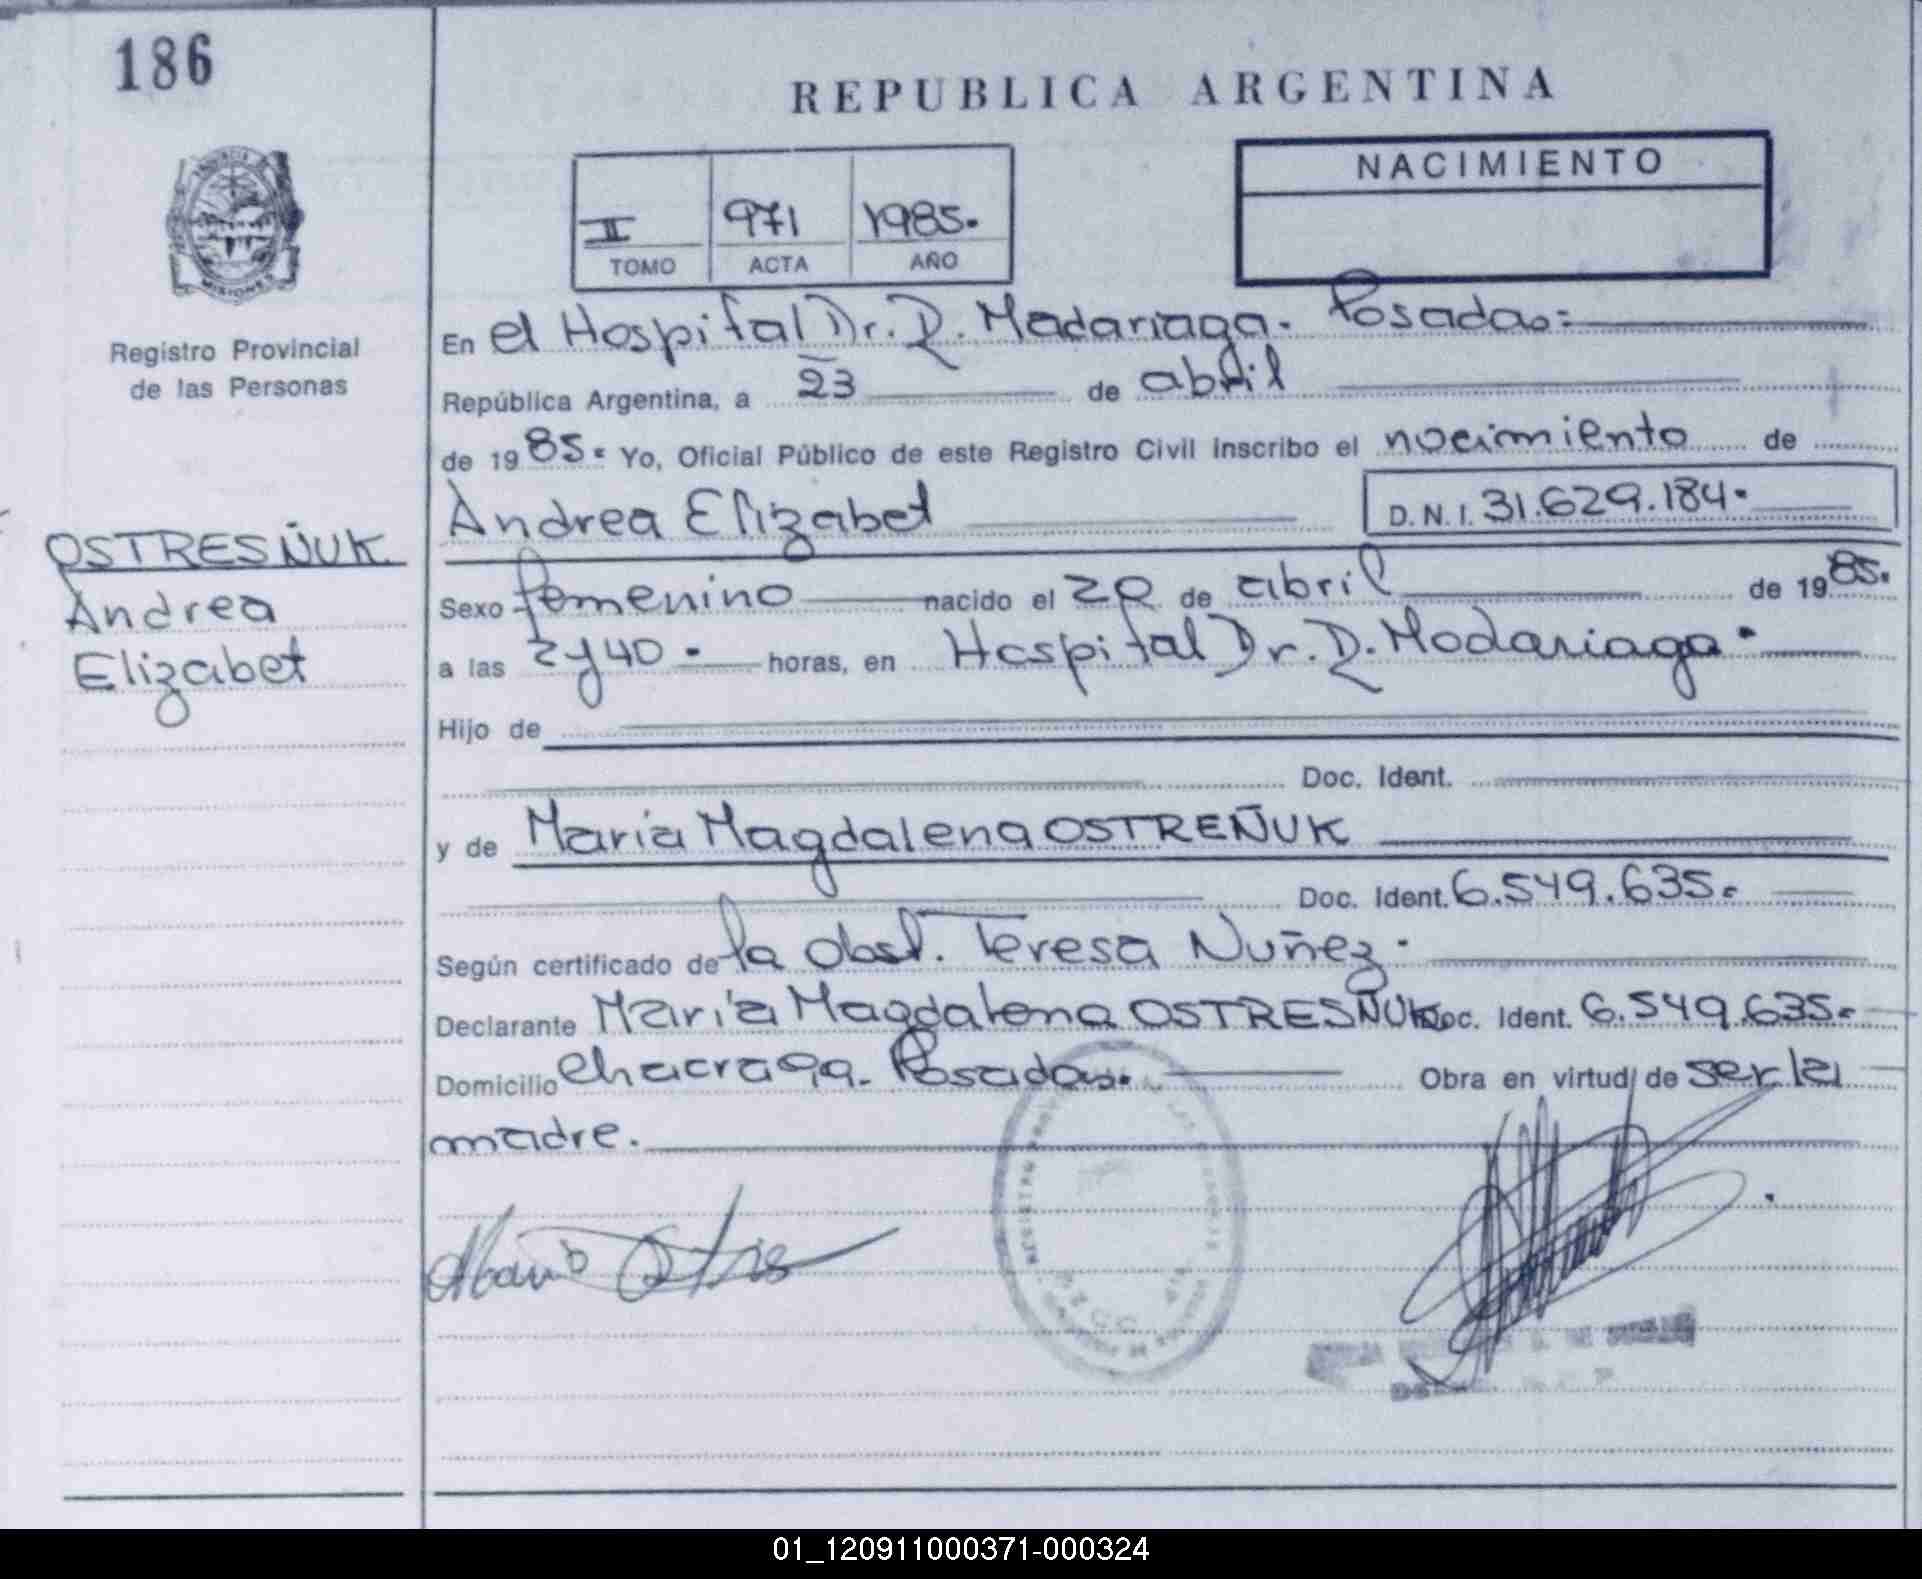 186
REPUBLICA ARGENTINA
NACIMIENTO
II 971 1985.
TOMO ACTA AÑO
MISIONES
Registro Provincial
de las Personas
OSTRESÑUK
Andrea
Elizabet
En el Hospital Dr. R. Madariaga. Posadas=
República Argentina, a 23 de abril
de 1985. Yo, Oficial Público de este Registro Civil inscribo el nacimiento de
Andrea Elizabet D.N.I. 31.629.184.
Sexo femenino nacido el 20 de abril de 1985.
a las 2y40. horas, en Hospital Dr. R. Madariaga.
Hijo de
Doc. Ident.
y de Maria Magdalena OSTREÑUK
Doc. Ident. 6.549.635.
Según certificado de la Obst. Teresa Nuñez.
Declarante María Magdalena OSTRESÑUK Doc. Ident. 6.549.635.
Domicilio chacra 99. Posadas. Obra en virtud de ser la
madre.
01_120911000371-000324